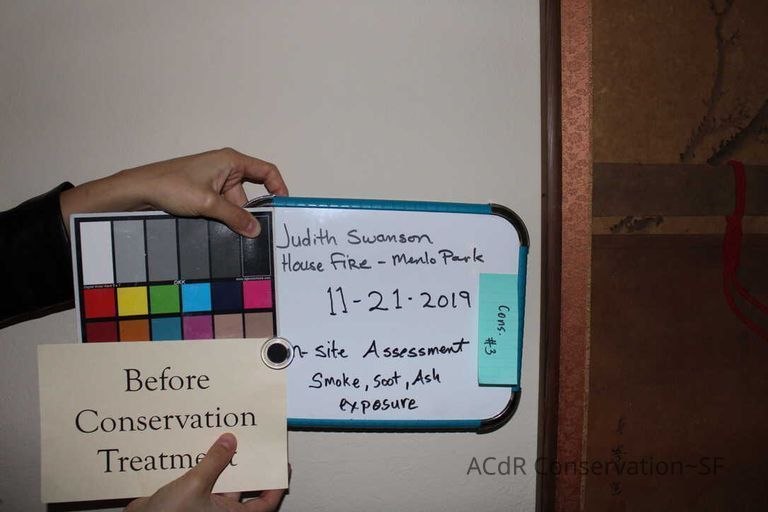 Judith Swanson
House Fire - Menlo Park
11-21-2019
n-site Assessment
Smoke, Soot, Ash
exposure
Cons. #3
DKK
Before
Conservation
Treatment
ACdR Conservation~SF